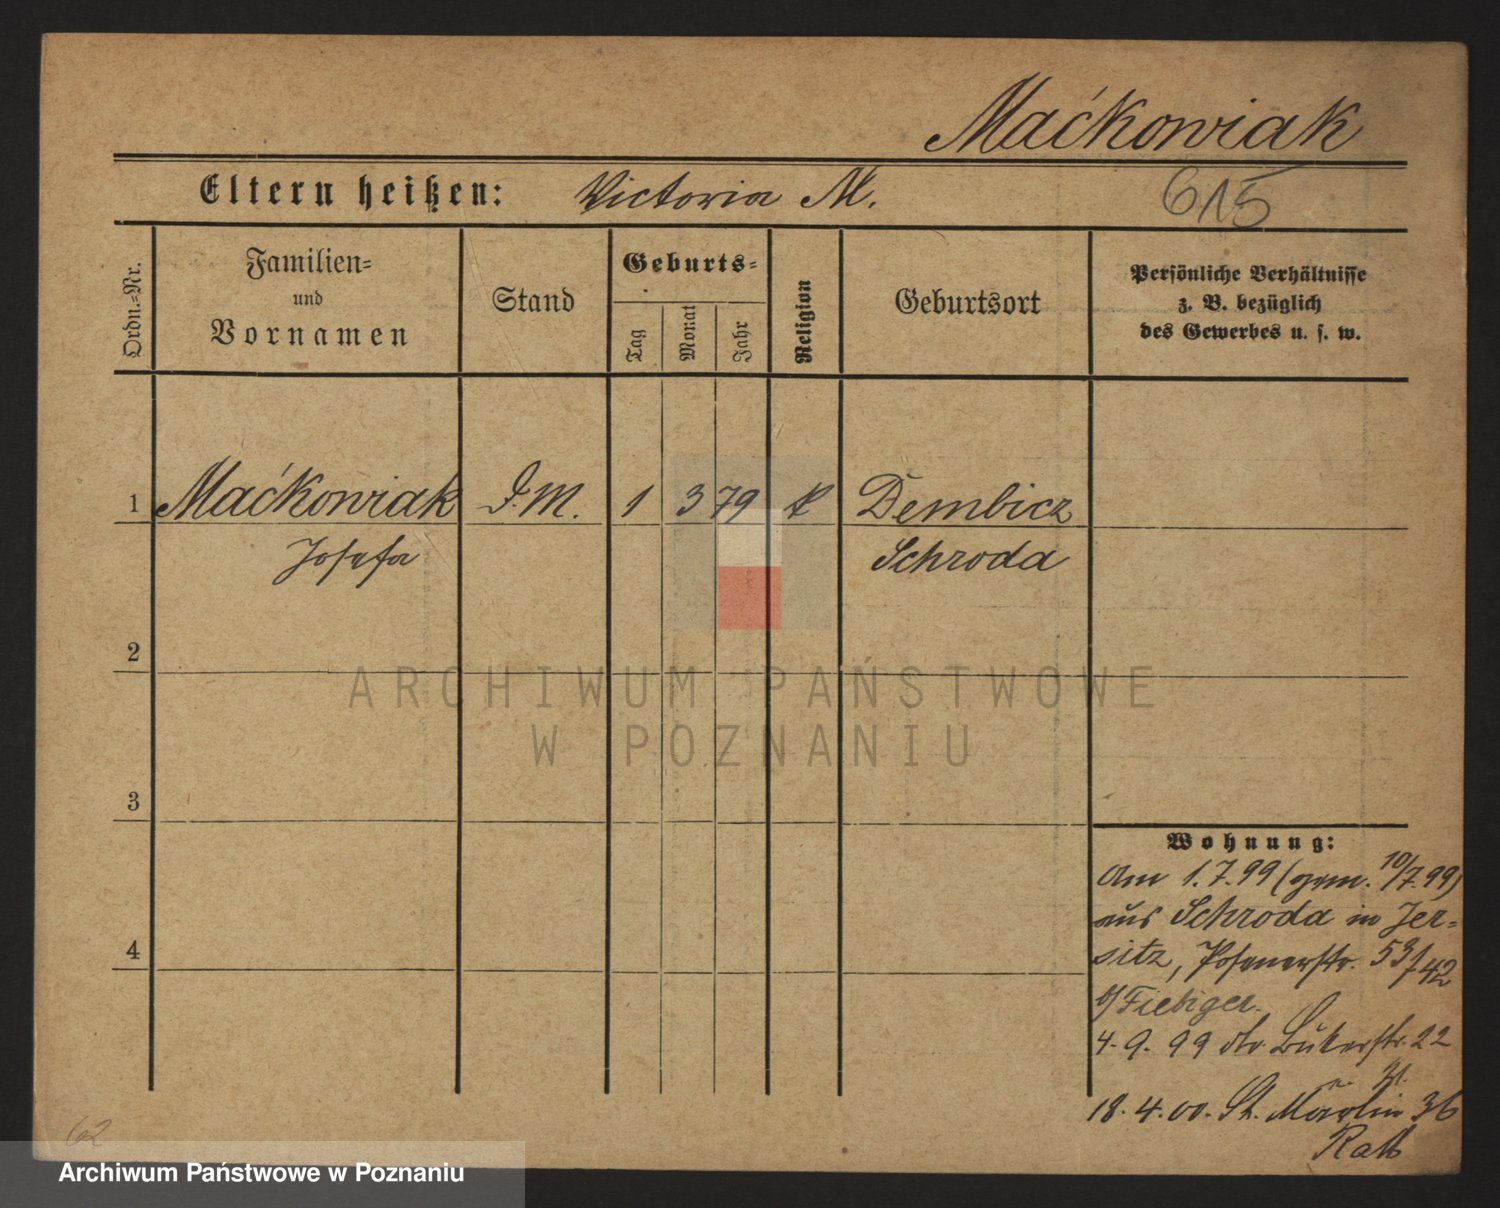 Maćkowiak
Eltern heißen: Victoria M.
615
Ordn.=Nr.
Familien=
und
Vornamen
Stand
Geburts=
Tag
Monat
Jahr
Religion
Geburtsort
Persönliche Verhältnisse
z. B. bezüglich
des Gewerbes u. s. w.
1 Maćkowiak D. M. 1 3 79 k Dembicz
Josefa Schroda
2
3
4
Wohnung:
Am 1.7.99 (gem. 10/7.99)
aus Schroda in Jer=
sitz, Posenerstr. 53/42
b/Fiebiger.
4. 9. 99 Bukerstr. 22
18. 4. 00. St. Martin 36
62
ARCHIWUM PAŃSTWOWE
W POZNANIU
Archiwum Państwowe w Poznaniu